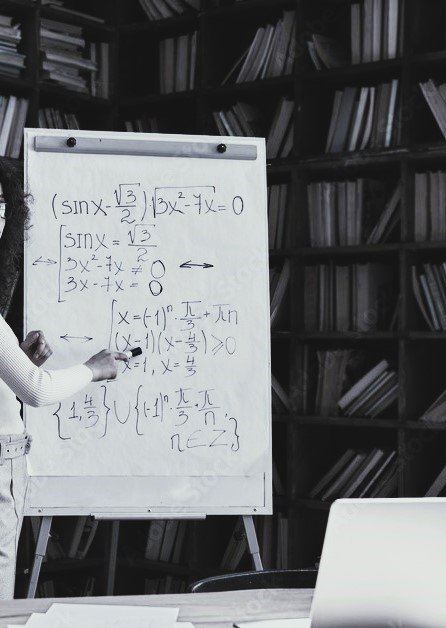 (sinx-√3/2)√(3x²-7x)=0
[sinx = √3/2
↔ 3x²-7x ≠ 0 ↔
3x-7x = 0
[x=(-1)ⁿ·π/3+πn
↔ (x-1)(x-4/3)⩾0
x=1, x=4/3
{1,4/3}∪{(-1)ⁿ·π/3·π/n,
n∈Z}